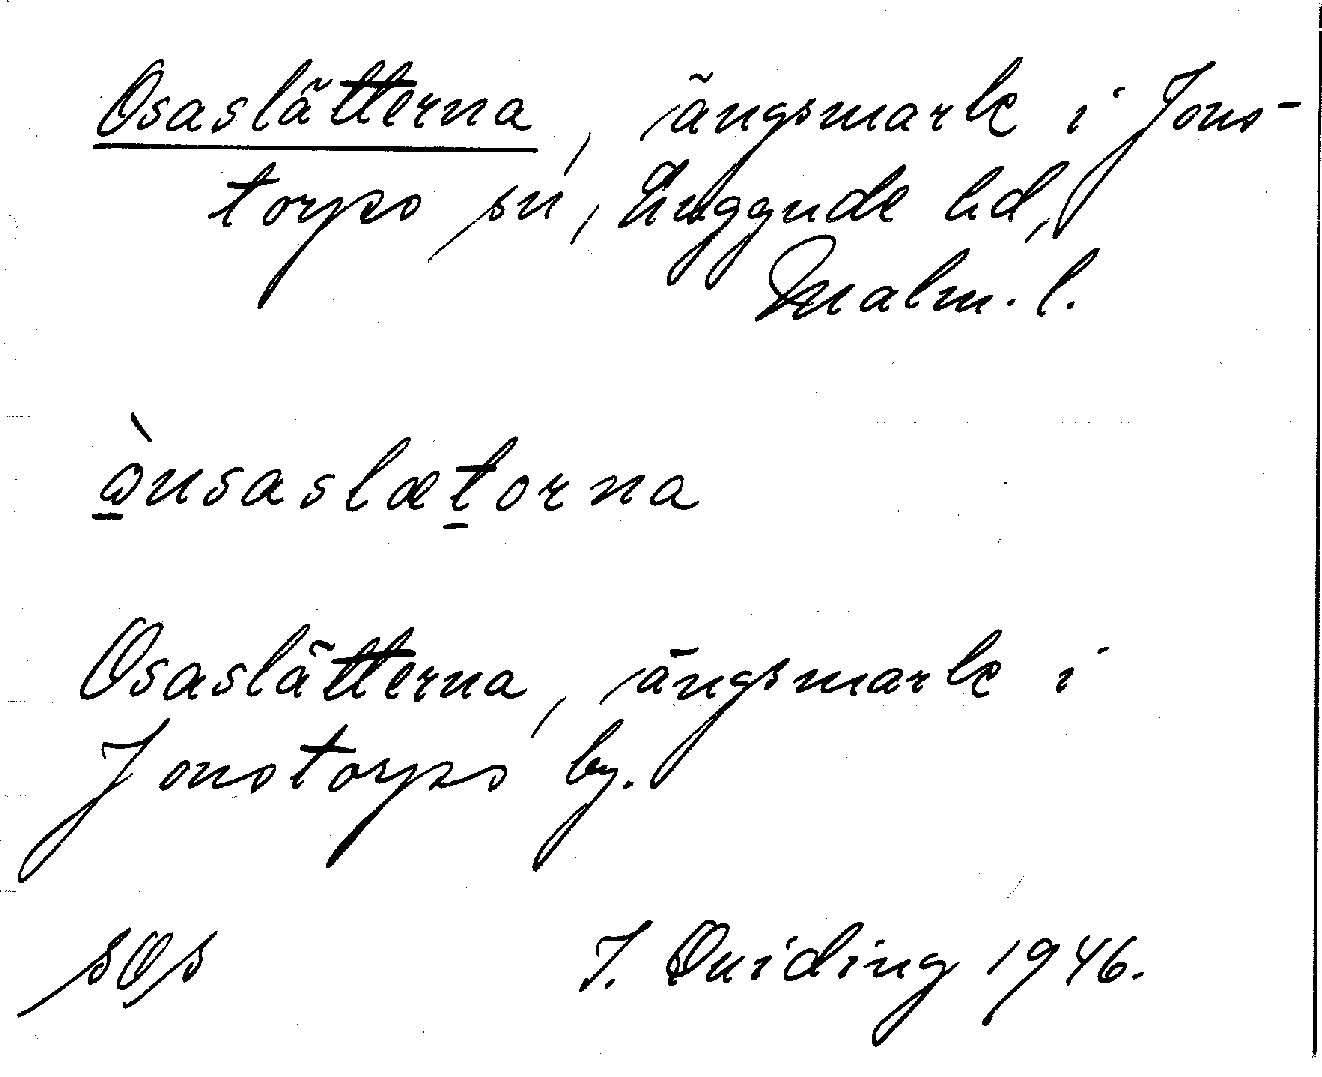 Osaslätterna, ängsmark i Jons-
torps sn, Luggude hd,
Malm. l.
òusaslætorna
Osaslätterna, ängsmark i
Jonstorps by.
sOs J. Quiding 1946.